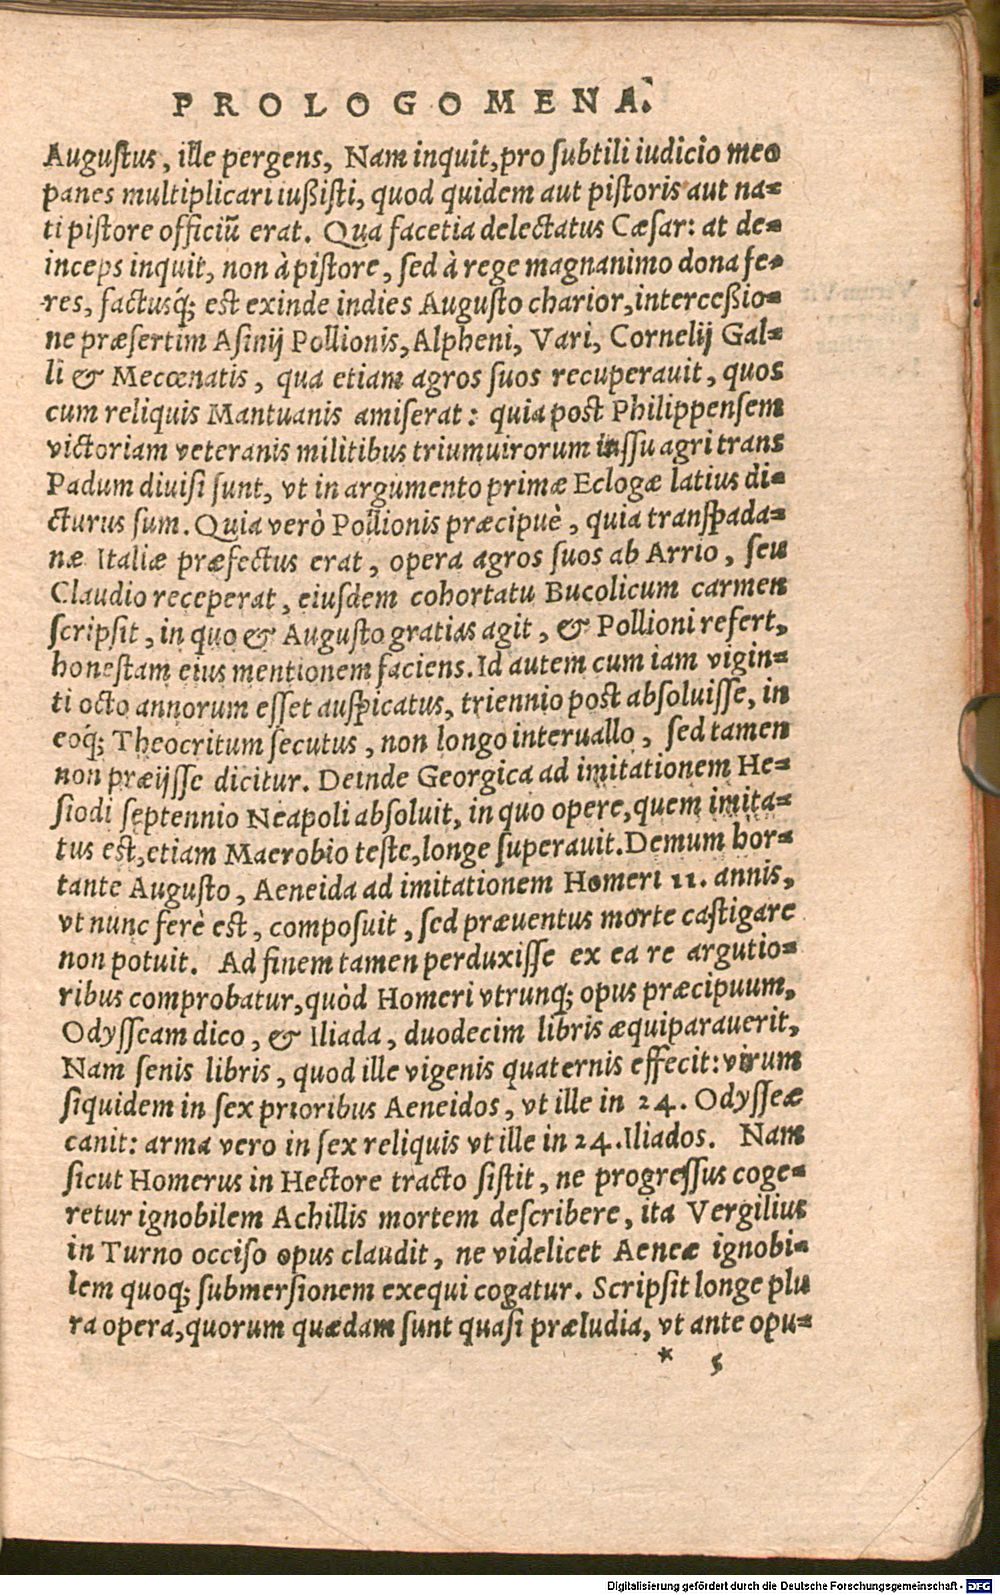 PROLOGOMENA.
Augustus, ille pergens, Nam inquit, pro subtili iudicio meo
panes multiplicari iußisti, quod quidem aut pistoris aut na-
ti pistore officiũ erat. Qua facetia delectatus Cæsar: at de-
inceps inquit, non à pistore, sed à rege magnanimo dona fe-
res, factusq́; est exinde indies Augusto charior, interceßio-
ne præsertim Asinij Pollionis, Alpheni, Vari, Cornelij Gal-
li & Mecœnatis, qua etiam agros suos recuperauit, quos
cum reliquis Mantuanis amiserat: quia post Philippensem
victoriam veteranis militibus triumuirorum iussu agri trans
Padum diuisi sunt, vt in argumento primæ Eclogæ latius di-
cturus sum. Quia verò Pollionis præcipuè, quia transpada-
næ Italiæ præfectus erat, opera agros suos ab Arrio, seu
Claudio receperat, eiusdem cohortatu Bucolicum carmen
scripsit, in quo & Augusto gratias agit, & Pollioni refert,
honestam eius mentionem faciens. Id autem cum iam vigin-
ti octo annorum esset auspicatus, triennio post absoluisse, in
eoq́; Theocritum secutus, non longo interuallo, sed tamen
non præijsse dicitur. Deinde Georgica ad imitationem He-
siodi septennio Neapoli absoluit, in quo opere, quem imita-
tus est, etiam Macrobio teste, longe superauit. Demum hor-
tante Augusto, Aeneida ad imitationem Homeri 11. annis,
vt nunc ferè est, composuit, sed præuentus morte castigare
non potuit. Ad finem tamen perduxisse ex ea re argutio-
ribus comprobatur, quòd Homeri vtrunq; opus præcipuum,
Odysseam dico, & Iliada, duodecim libris æquiparauerit,
Nam senis libris, quod ille vigenis quaternis effecit: virum
siquidem in sex prioribus Aeneidos, vt ille in 24. Odysseæ
canit: arma vero in sex reliquis vt ille in 24. Iliados. Nam
sicut Homerus in Hectore tracto sistit, ne progressus coge-
retur ignobilem Achillis mortem describere, ita Vergilius
in Turno occiso opus claudit, ne videlicet Aeneæ ignobi-
lem quoq; submersionem exequi cogatur. Scripsit longe plu
ra opera, quorum quædam sunt quasi præludia, vt ante opu-
* 5
Digitalisierung gefördert durch die Deutsche Forschungsgemeinschaft - DFG